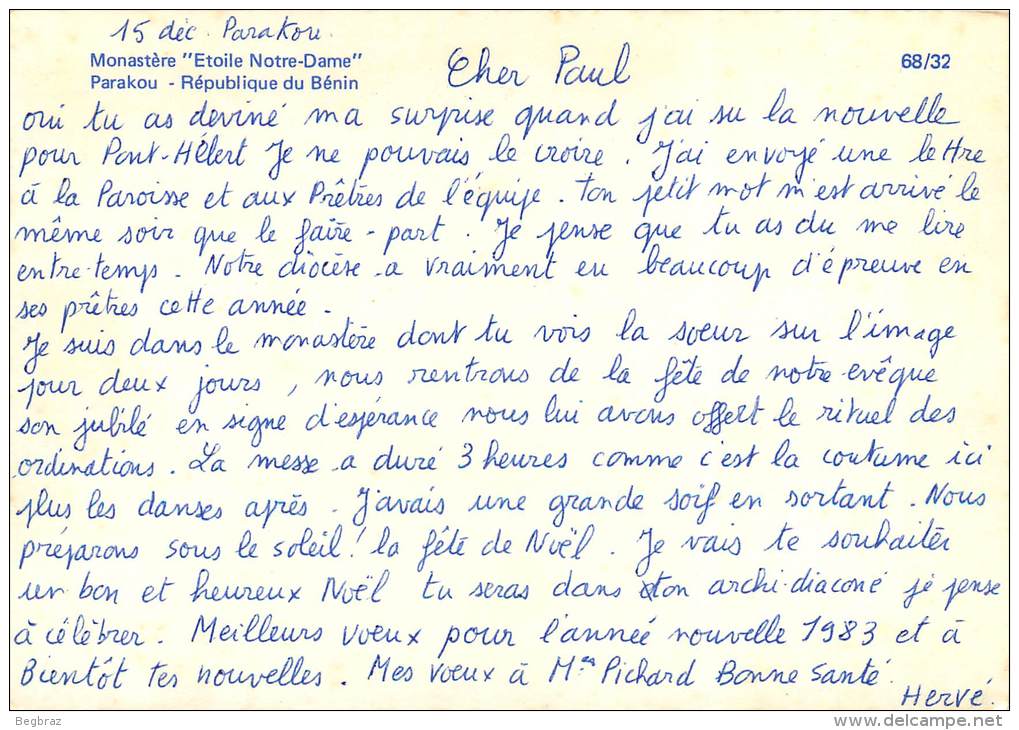 15 déc Parakou.
Monastère "Etoile Notre-Dame"
Parakou - République du Bénin
68/32
Cher Paul
oui tu as deviné ma surprise quand j'ai su la nouvelle
pour Pont-Hélert Je ne pouvais le croire. J'ai envoyé une lettre
à la Paroisse et aux Prêtres de l'équipe. ton petit mot m'est arrivé le
même soir que le faire-part. Je pense que tu as du me lire
entre-temps. Notre diocèse a vraiment eu beaucoup d'épreuve en
ses prêtres cette année.
Je suis dans le monastère dont tu vois la soeur sur l'image
pour deux jours, nous rentrons de la fête de notre evêque
son jubilé en signe d'espérance nous lui avons offert le rituel des
ordinations. La messe a duré 3 heures comme c'est la coutume ici
plus les danses après. J'avais une grande soif en sortant. Nous
préparons sous le soleil! la fête de Noël. Je vais te souhaiter
un bon et heureux Noël tu seras dans ton archi-diaconé je pense
à célèbrer. Meilleurs voeux pour l'année nouvelle 1983 et à
Bientôt tes nouvelles. Mes voeux à Pichard Bonne Santé.
Hervé.
Begbraz
delcampe.net